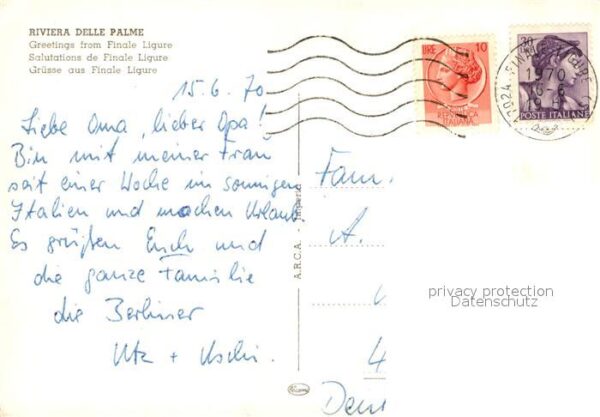 RIVIERA DELLE PALME
Greetings from Finale Ligure
Salutations de Finale Ligure
Grüsse aus Finale Ligure
15.6.70
Liebe Oma, lieber Opa!
Bin mit meiner Frau
seit einer Woche im sonnigen
Italien und machen Urlaub.
Es grüßen Euch und
die ganze Familie
die Berliner
Utz + Uschi.
Fam.
A.
4
Deu
A.R.C.A. -
LIRE 10
REPUBBLICA
ITALIANA
30
POSTE ITALIANE
17024 FINALE LIGURE
1970
16-6
19
privacy protection
Datenschutz